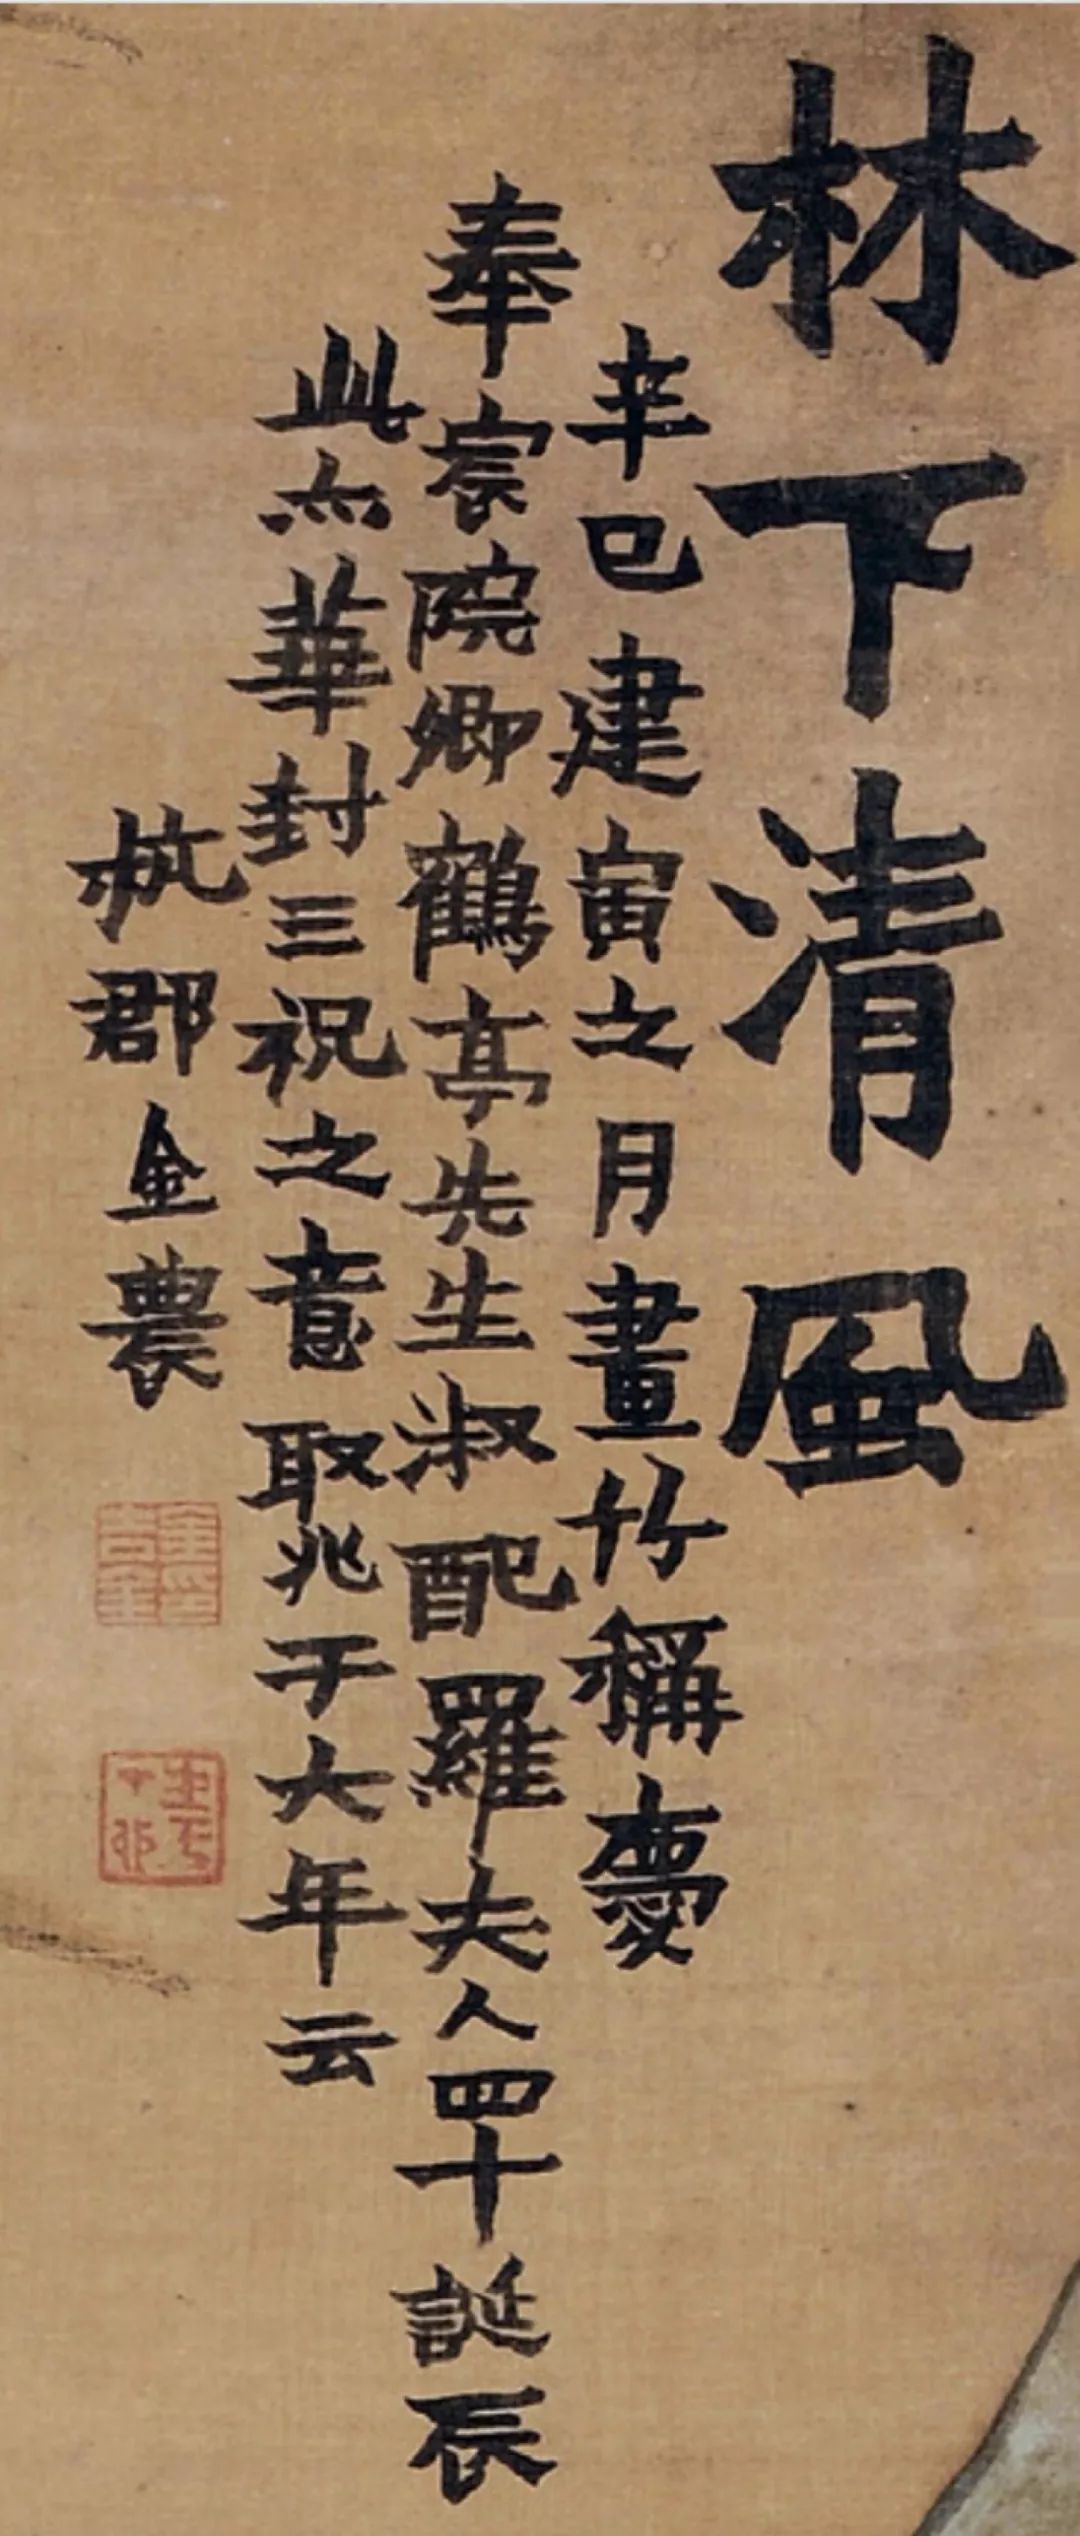 林下清風
辛巳建寅之月畫竹稱慶
奉宸院卿鶴亭先生淑配羅夫人四十誕辰
此亦華封三祝之意取兆于大年云
杭郡金農